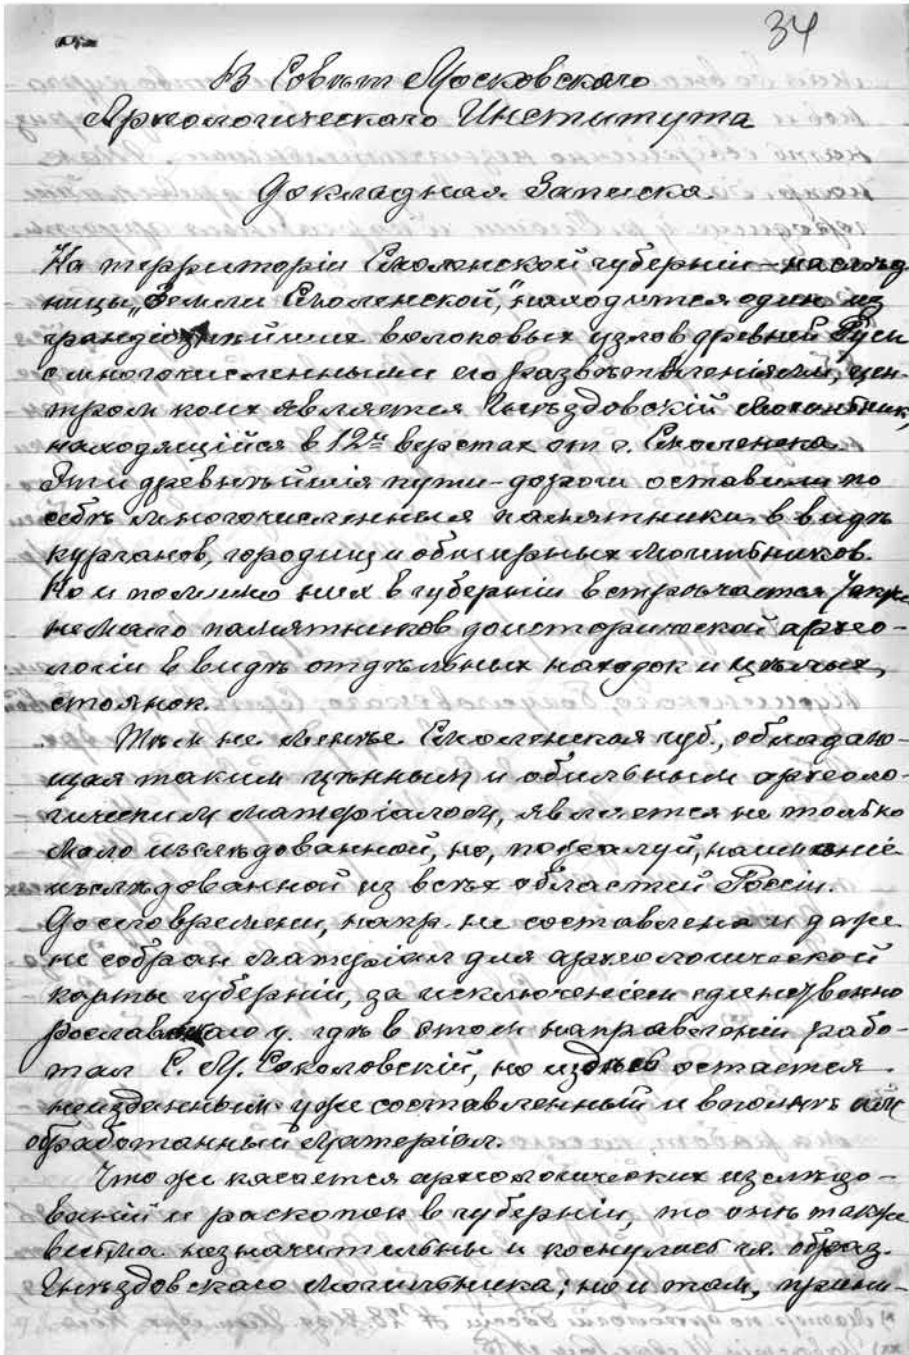 34
В Совѣт Московского
Археологическаго Института
Докладная Записка.
На территоріи Смоленской губерніи — наслѣд
ницы „Земли Смоленской," находится один из
грандіознѣйших волоковых узлов древней Руси
с многочисленными его развѣтвленіями, цен-
тром коих является Гнѣздовскій Могильник,
находящійся в 12ти верстах от г. Смоленска.
Эти древнѣйшія пути-дороги оставили по
себѣ многочисленныя памятники в видѣ
курганов, городищ и обширных могильников.
Но и помимо них в губерніи встрѣчается также
немало памятников доисторической архео-
логіи в видѣ отдѣльных находок и цѣлых
стоянок.
Тѣм не менѣе Смоленская губ., обладаю-
щая таким цѣнным и обильным археоло-
гическим матеріалом, является не только
мало изслѣдованной, но, пожалуй, наименѣе
изслѣдованной из всѣх областей Россіи.
До сего времени, напр. не составлена и даже
не собран матеріал для археологической
карты губерніи, за исключеніем единственно
рославльскаго у. гдѣ в этом направленіи рабо-
тал С. М. Соколовскій, но и здѣсь остается
неизданным уже составленный и вполнѣ им
обработанный матеріал.
Что же касается археологических изслѣдо-
ваній и раскопок в губерніи, то онѣ также
весьма незначительны и коснулись гл. образ.
Гнѣздовскаго Могильника; но и там,